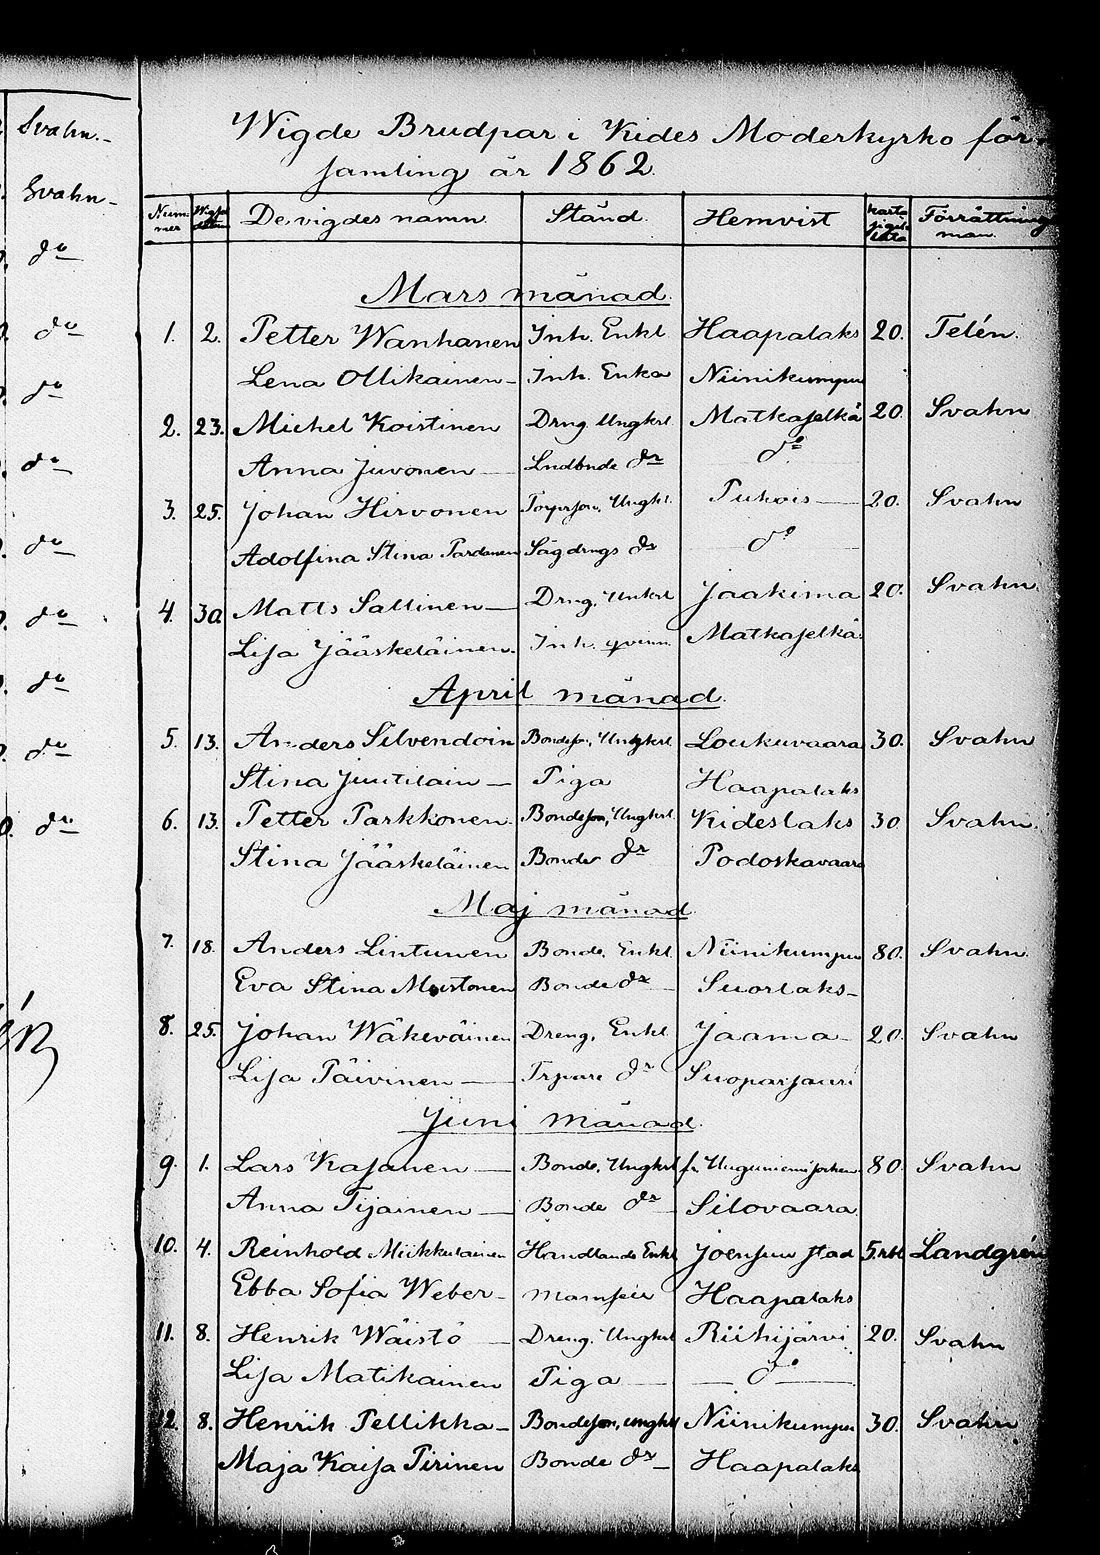 Svahn.
Svahn
do
do
do
do
do
do
do
do
do
Wigde Brudpar i Kides Moderkyrko för-
samling år 1862.
Num-mer Wigselda De vigdes namn. Stånd. Hemvist Förrättnings man.
Mars månad.
1. 2. Petter Wanhanen Inh. Enkl. Haapalaks 20. Telén.
Lena Ollikainen Inh. Enka Niinikumpu
2. 23. Michel Koistinen Drng Ungkrl. Matkaselkä 20. Svahn
Anna Juvonen Lndbnde dr do
3. 25. Johan Hirvonen Torpson, Ungkl. Puhois 20. Svahn
Adolfina Stina Pardanen Sågdrngs dr do
4. 30 Matts Sallinen Drng, Unkrl Jaakima 20. Svahn.
Lisa Jääskeläinen. Inh. qvinn. Matkaselkä.
April månad.
5. 13. Anders Silvendoin Bondeson, Ungkrl. Loukuvaara 30. Svahn
Stina Juutilain Piga Haapalaks
6. 13. Petter Parkkonen Bondeson, Ungkrl. Kideslaks 30. Svahn.
Stina Jääskeläinen Bonde dr Podoskavaara
Maj månad.
7. 18. Anders Lintunen Bonde, Enkl. Niinikumpu 80. Svahn.
Eva Stina Mustonen Bonde dr Suorlaks
8. 25. Johan Wäkeväinen Dreng, Enkl. Jaama 20. Svahn
Lisa Päivinen Trpare dr Suoparsauri
Juni månad.
9. 1. Lars Kajanen Bonde, Ungkrl fr. Uuguniemi socken 80. Svahn
Anna Tijainen Bonde dr Silovaara
10. 4. Reinhold Miikkulainen Handlande Enkl Joensuu stad 5 rbl Landgrén
Ebba Sofia Weber mamsell Haapalaks
11. 8. Henrik Wäistö Dreng, Ungkrl Riihijärvi 20. Svahn
Lisa Matikainen Piga do
12. 8. Henrik Pellikka Bondeson, ungkrl Niinikumpu 30. Svahn
Maja Kaisa Pirinen Bonde dr Haapalaks